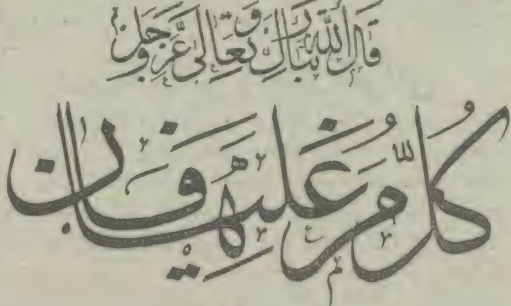 قَالَ اللّٰهُ تَبَارَكَ وَتَعَالَى عَزَّ وَجَلَّ
كُلُّ مَنْ عَلَيْهَا فَانٍ